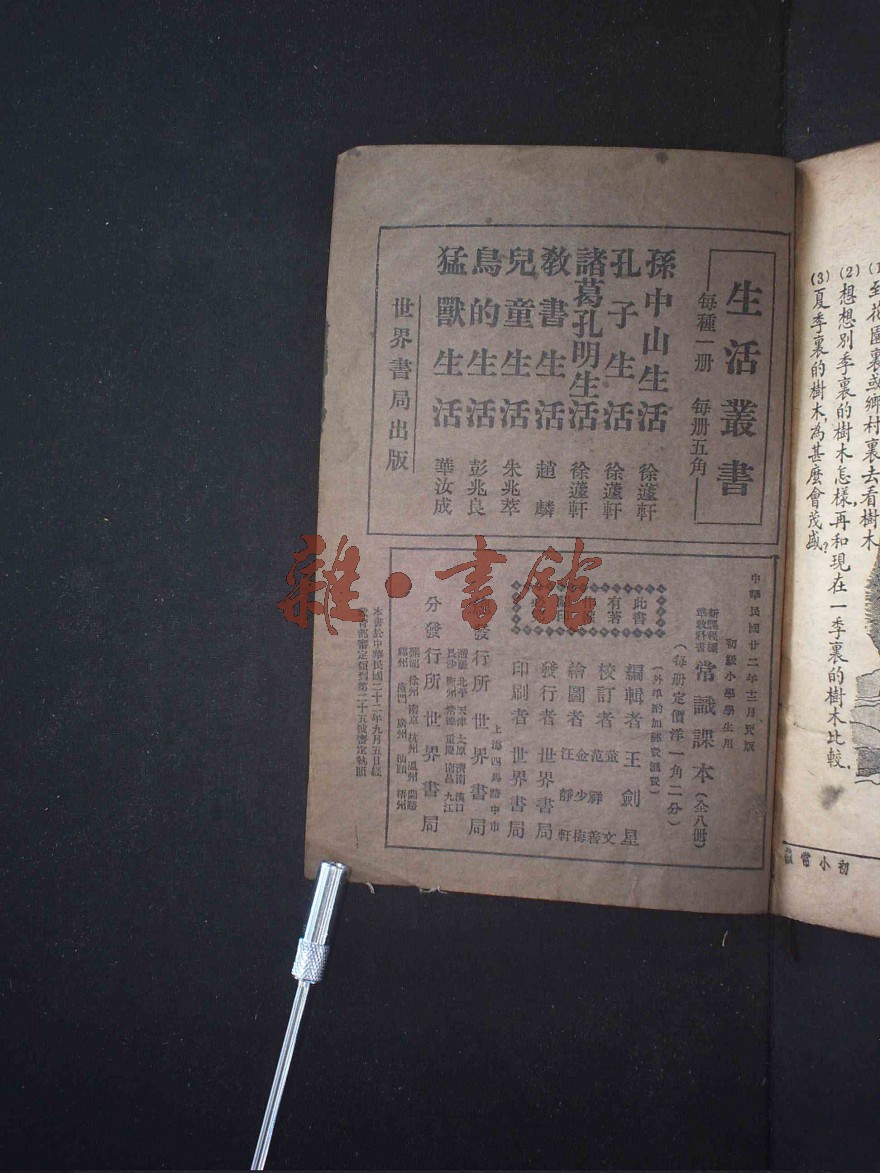 (2) 想想別季裏的樹木怎樣，再和現在一季裏的樹木比較，
(3) 夏季裏的樹木，為甚麼會茂盛？
初小常識
生活叢書
每種一册 每册五角
孫中山生活 徐蘧軒
孔子生活 徐蘧軒
諸葛孔明生活 徐蘧軒
教書生活 趙麟
兒童生活 朱兆萃
鳥的生活 彭兆良
猛獸生活 華汝成
世界書局出版
中華民國廿二年十二月 版
初級小學學生用
常識課本（全八冊）
（每册定價洋一角二分）
（外埠酌加郵費滙費）
編輯者 王劍星
校訂者 董文 范祥善
繪圖者 金少梅 汪靜軒
發行者 世界書局
印刷者 世界書局
上海四馬路中市
發行所 世界書局
分發行所 世界書局
本書於中華民國二十二年九月五日經
教育部審定領到第二十五號審定執照
此書
有著
雜·書館